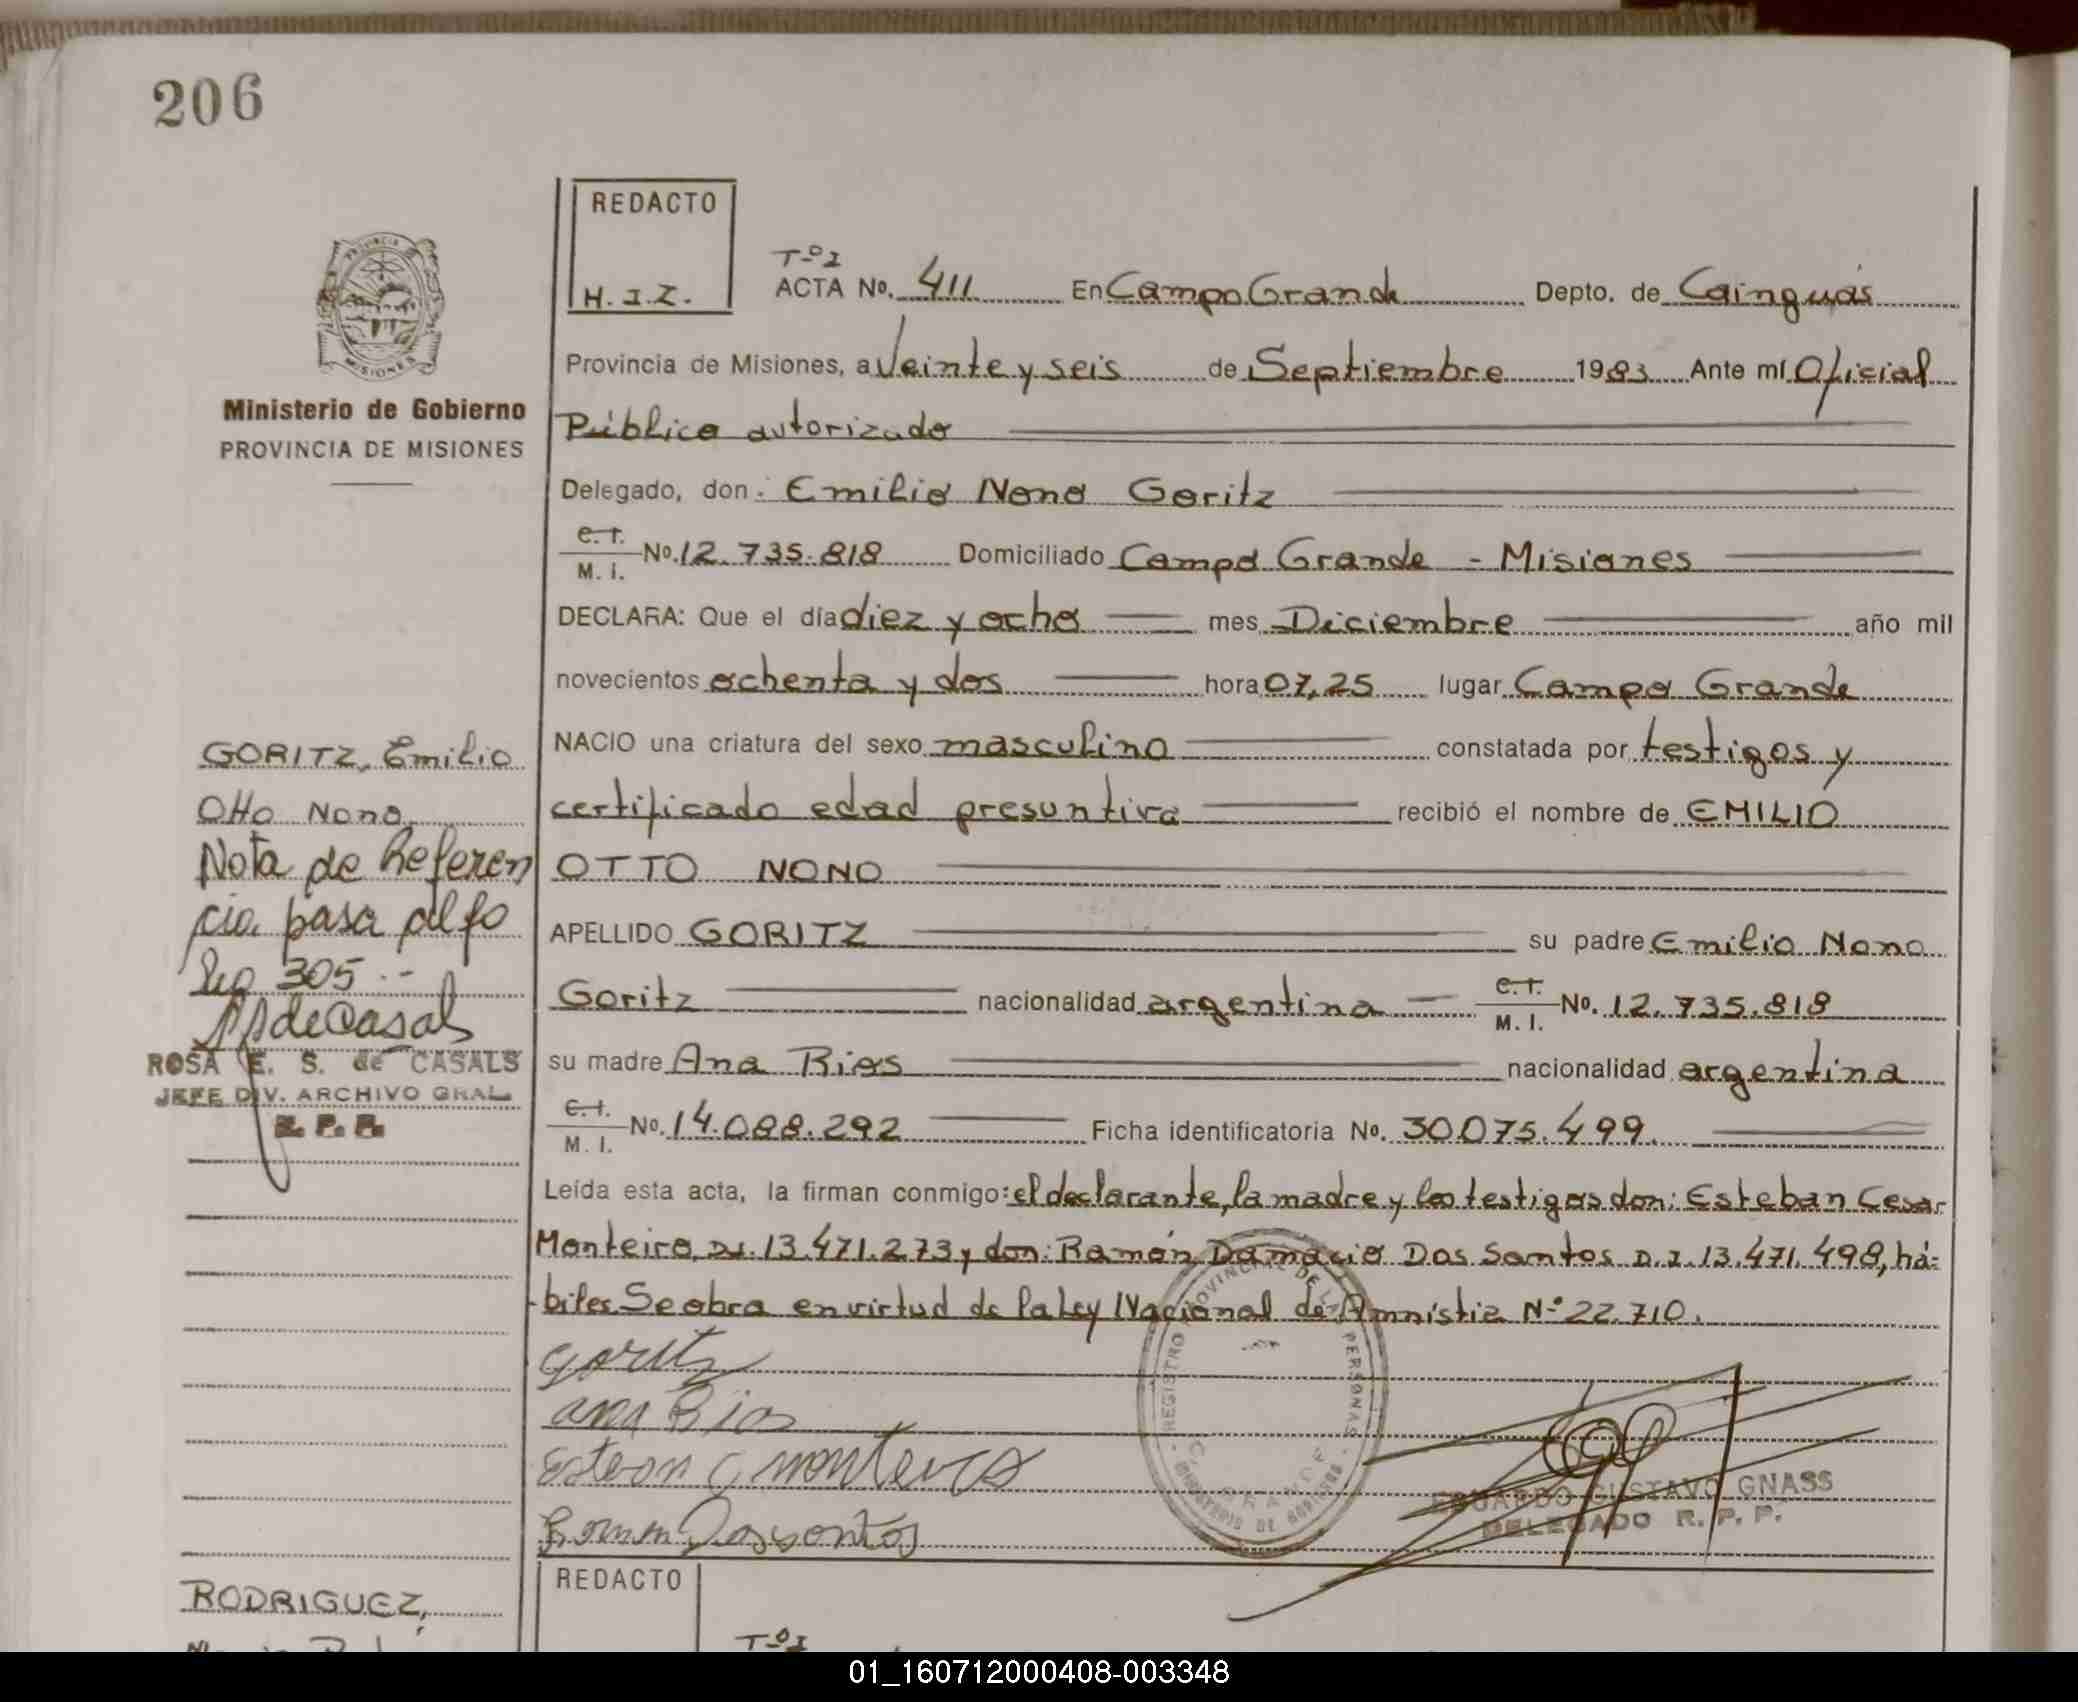 206
REDACTO
H. I. Z.
T-º I
ACTA Nº. 411 En Campo Grande Depto. de Cainguás
Provincia de Misiones, a Veinte y seis de Septiembre 1983 Ante mí Oficial
Público autorizado
Delegado, don: Emilio Nono Goritz
C.I. M.I. Nº. 12.735.818 Domiciliado Campo Grande - Misiones
DECLARA: Que el día diez y ocho mes Diciembre año mil
novecientos ochenta y dos hora 07,25 lugar Campo Grande
NACIO una criatura del sexo masculino constatada por testigos y
certificado edad presuntiva recibió el nombre de EMILIO
OTTO NONO
APELLIDO GORITZ su padre Emilio Nono
Goritz nacionalidad argentina C.I. M.I. Nº. 12.735.818
su madre Ana Rios nacionalidad argentina
C.I. M.I. Nº. 14.088.292 Ficha identificatoria Nº. 30.075.499.
Leída esta acta, la firman conmigo: el declarante, la madre y los testigos don: Esteban Cesar
Monteiro, D.I. 13.471.273 y don: Ramón Damacio Dos Santos D.I. 13.471.498, há=
biles. Se obra en virtud de la Ley Nacional de Amnistia N-º 22.710.
Goritz
ana Rios
Esteban C monteiro
Ramon Dos santos
REGISTRO PROVINCIAL DE LAS PERSONAS
C. GRANDE
MINISTERIO DE GOBIERNO
EDUARDO GUSTAVO GNASS
DELEGADO R. P. P.
PROVINCIA DE MISIONES
Ministerio de Gobierno
PROVINCIA DE MISIONES
GORITZ, Emilio
Otto Nono.
Nota de Referen
cia. pasa al fo
lio 305.-
de Casals
ROSA E. S. de CASALS
JEFE DIV. ARCHIVO GRAL
R. P. P.
RODRIGUEZ,
REDACTO
T-º I
01_160712000408-003348